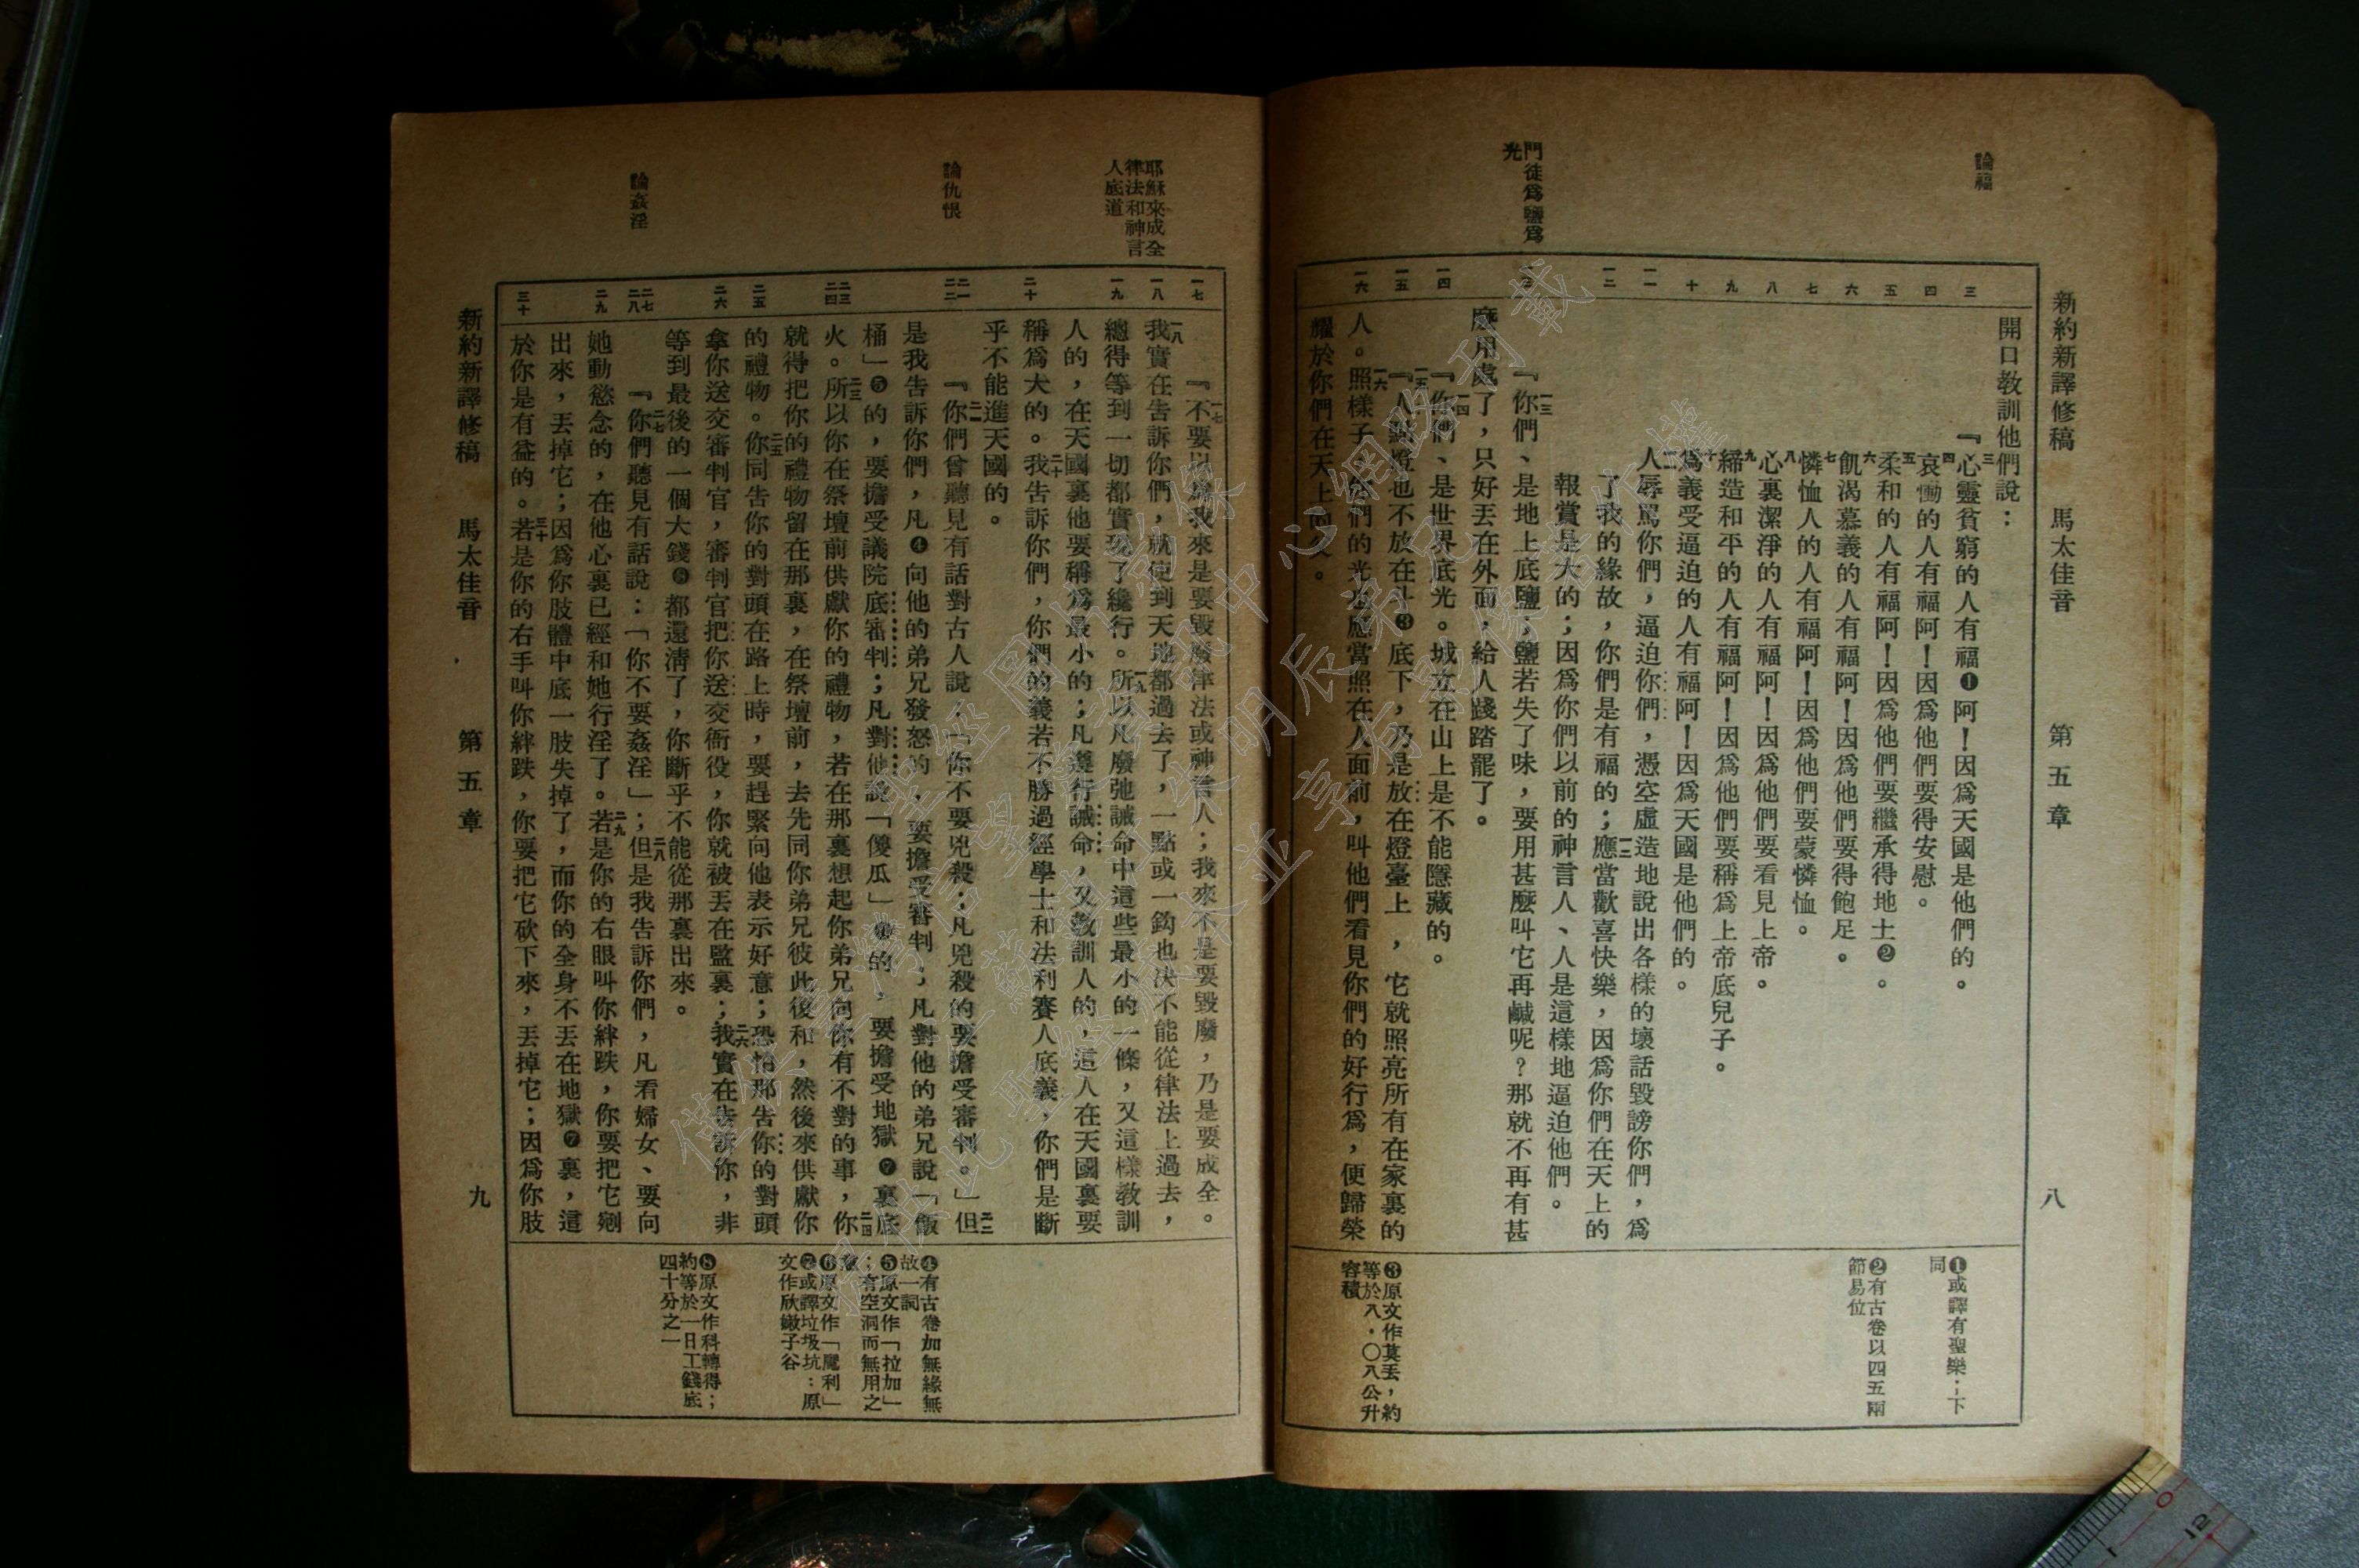 新約新譯修稿 馬太佳音 第五章 八
論福
門徒爲鹽爲
光
三
四
五
六
七
八
九
十
一一
一二
一三
一四
一五
一六
開口教訓他們說：
『三心靈貧窮的人有福❶阿！因爲天國是他們的。
四哀慟的人有福阿！因爲他們要得安慰。
五柔和的人有福阿！因爲他們要繼承得地土❷。
六飢渴慕義的人有福阿！因爲他們要得飽足。
七憐恤人的人有福阿！因爲他們要蒙憐恤。
八心裏潔淨的人有福阿！因爲他們要看見上帝。
九締造和平的人有福阿！因爲他們要稱爲上帝底兒子。
十爲義受逼迫的人有福阿！因爲天國是他們的。
人辱罵你們，逼迫你們，憑空虛造地說出各樣的壞話毀謗你們，爲
了我的緣故，你們是有福的；一二應當歡喜快樂，因爲你們在天上的
報賞是大的；因爲你們以前的神言人、人是這樣地逼迫他們。
『一三你們、是地上底鹽；鹽若失了味，要用甚麼叫它再鹹呢？那就不再有甚
麼用處了，只好丟在外面，給人踐踏罷了。
『一四你們、是世界底光。城立在山上是不能隱藏的。
『一五人點燈也不放在斗❸底下，乃是放在燈臺上，它就照亮所有在家裏的
人。一六照樣子你們的光也應當照在人面前，叫他們看見你們的好行爲，便歸榮
耀於你們在天上的父。
❶或譯有聖樂；下
同
❷有古卷以四五兩
節易位
❸原文作莫丟，約
等於八．〇八公升
容積
耶穌來成全
律法和神言
人底道
論仇恨
論姦淫
一七
一八
一九
二十
二一
二二
二三
二四
二五
二六
二七
二八
二九
三十
『一七不要以爲我來是要毀廢律法或神言人；我來不是要毀廢，乃是要成全。
一八我實在告訴你們，就使到天地都過去了，一點或一鈎也決不能從律法上過去，
總得等到一切都實現了纔行。一九所以凡廢弛誡命中這些最小的一條，又這樣教訓
人的，在天國裏他要稱爲最小的；凡遵行誡命，又教訓人的，這人在天國裏要
稱爲大的。二十我告訴你們，你們的義若不勝過經學士和法利賽人底義，你們是斷
乎不能進天國的。
『二一你們曾聽見有話對古人說：「你不要兇殺；凡兇殺的要擔受審判。」二二但
是我告訴你們，凡❹向他的弟兄發怒的，要擔受審判；凡對他的弟兄說「飯
桶」❺的，要擔受議院底審判；凡對他說「傻瓜」❻的，要擔受地獄❼裏底
火。二三所以你在祭壇前供獻你的禮物，若在那裏想起你弟兄向你有不對的事，二四你
就得把你的禮物留在那裏，在祭壇前，去先同你弟兄彼此復和，然後來供獻你
的禮物。二五你同告你的對頭在路上時，要趕緊向他表示好意；恐怕那告你的對頭
拿你送交審判官，審判官把你送交衙役，你就被丟在監裏；二六我實在告訴你，非
等到最後的一個大錢❽都還清了，你斷乎不能從那裏出來。
『二七你們聽見有話說：「你不要姦淫」；二八但是我告訴你們，凡看婦女、要向
她動慾念的，在他心裏已經和她行淫了。二九若是你的右眼叫你絆跌，你要把它剜
出來，丟掉它；因爲你肢體中底一肢失掉了，而你的全身不丟在地獄❼裏，這
於你是有益的。三十若是你的右手叫你絆跌，你要把它砍下來，丟掉它；因爲你肢
❹有古卷加無緣無
故一詞
❺原文作「拉加」
；有空洞而無用之
意
❻原文作「魔利」
❼或譯垃圾坑：原
文作欣嫩子谷
❽原文作科轉得；
約等於一日工錢底
四十分之一
新約新譯修稿 馬太佳音 第五章 九